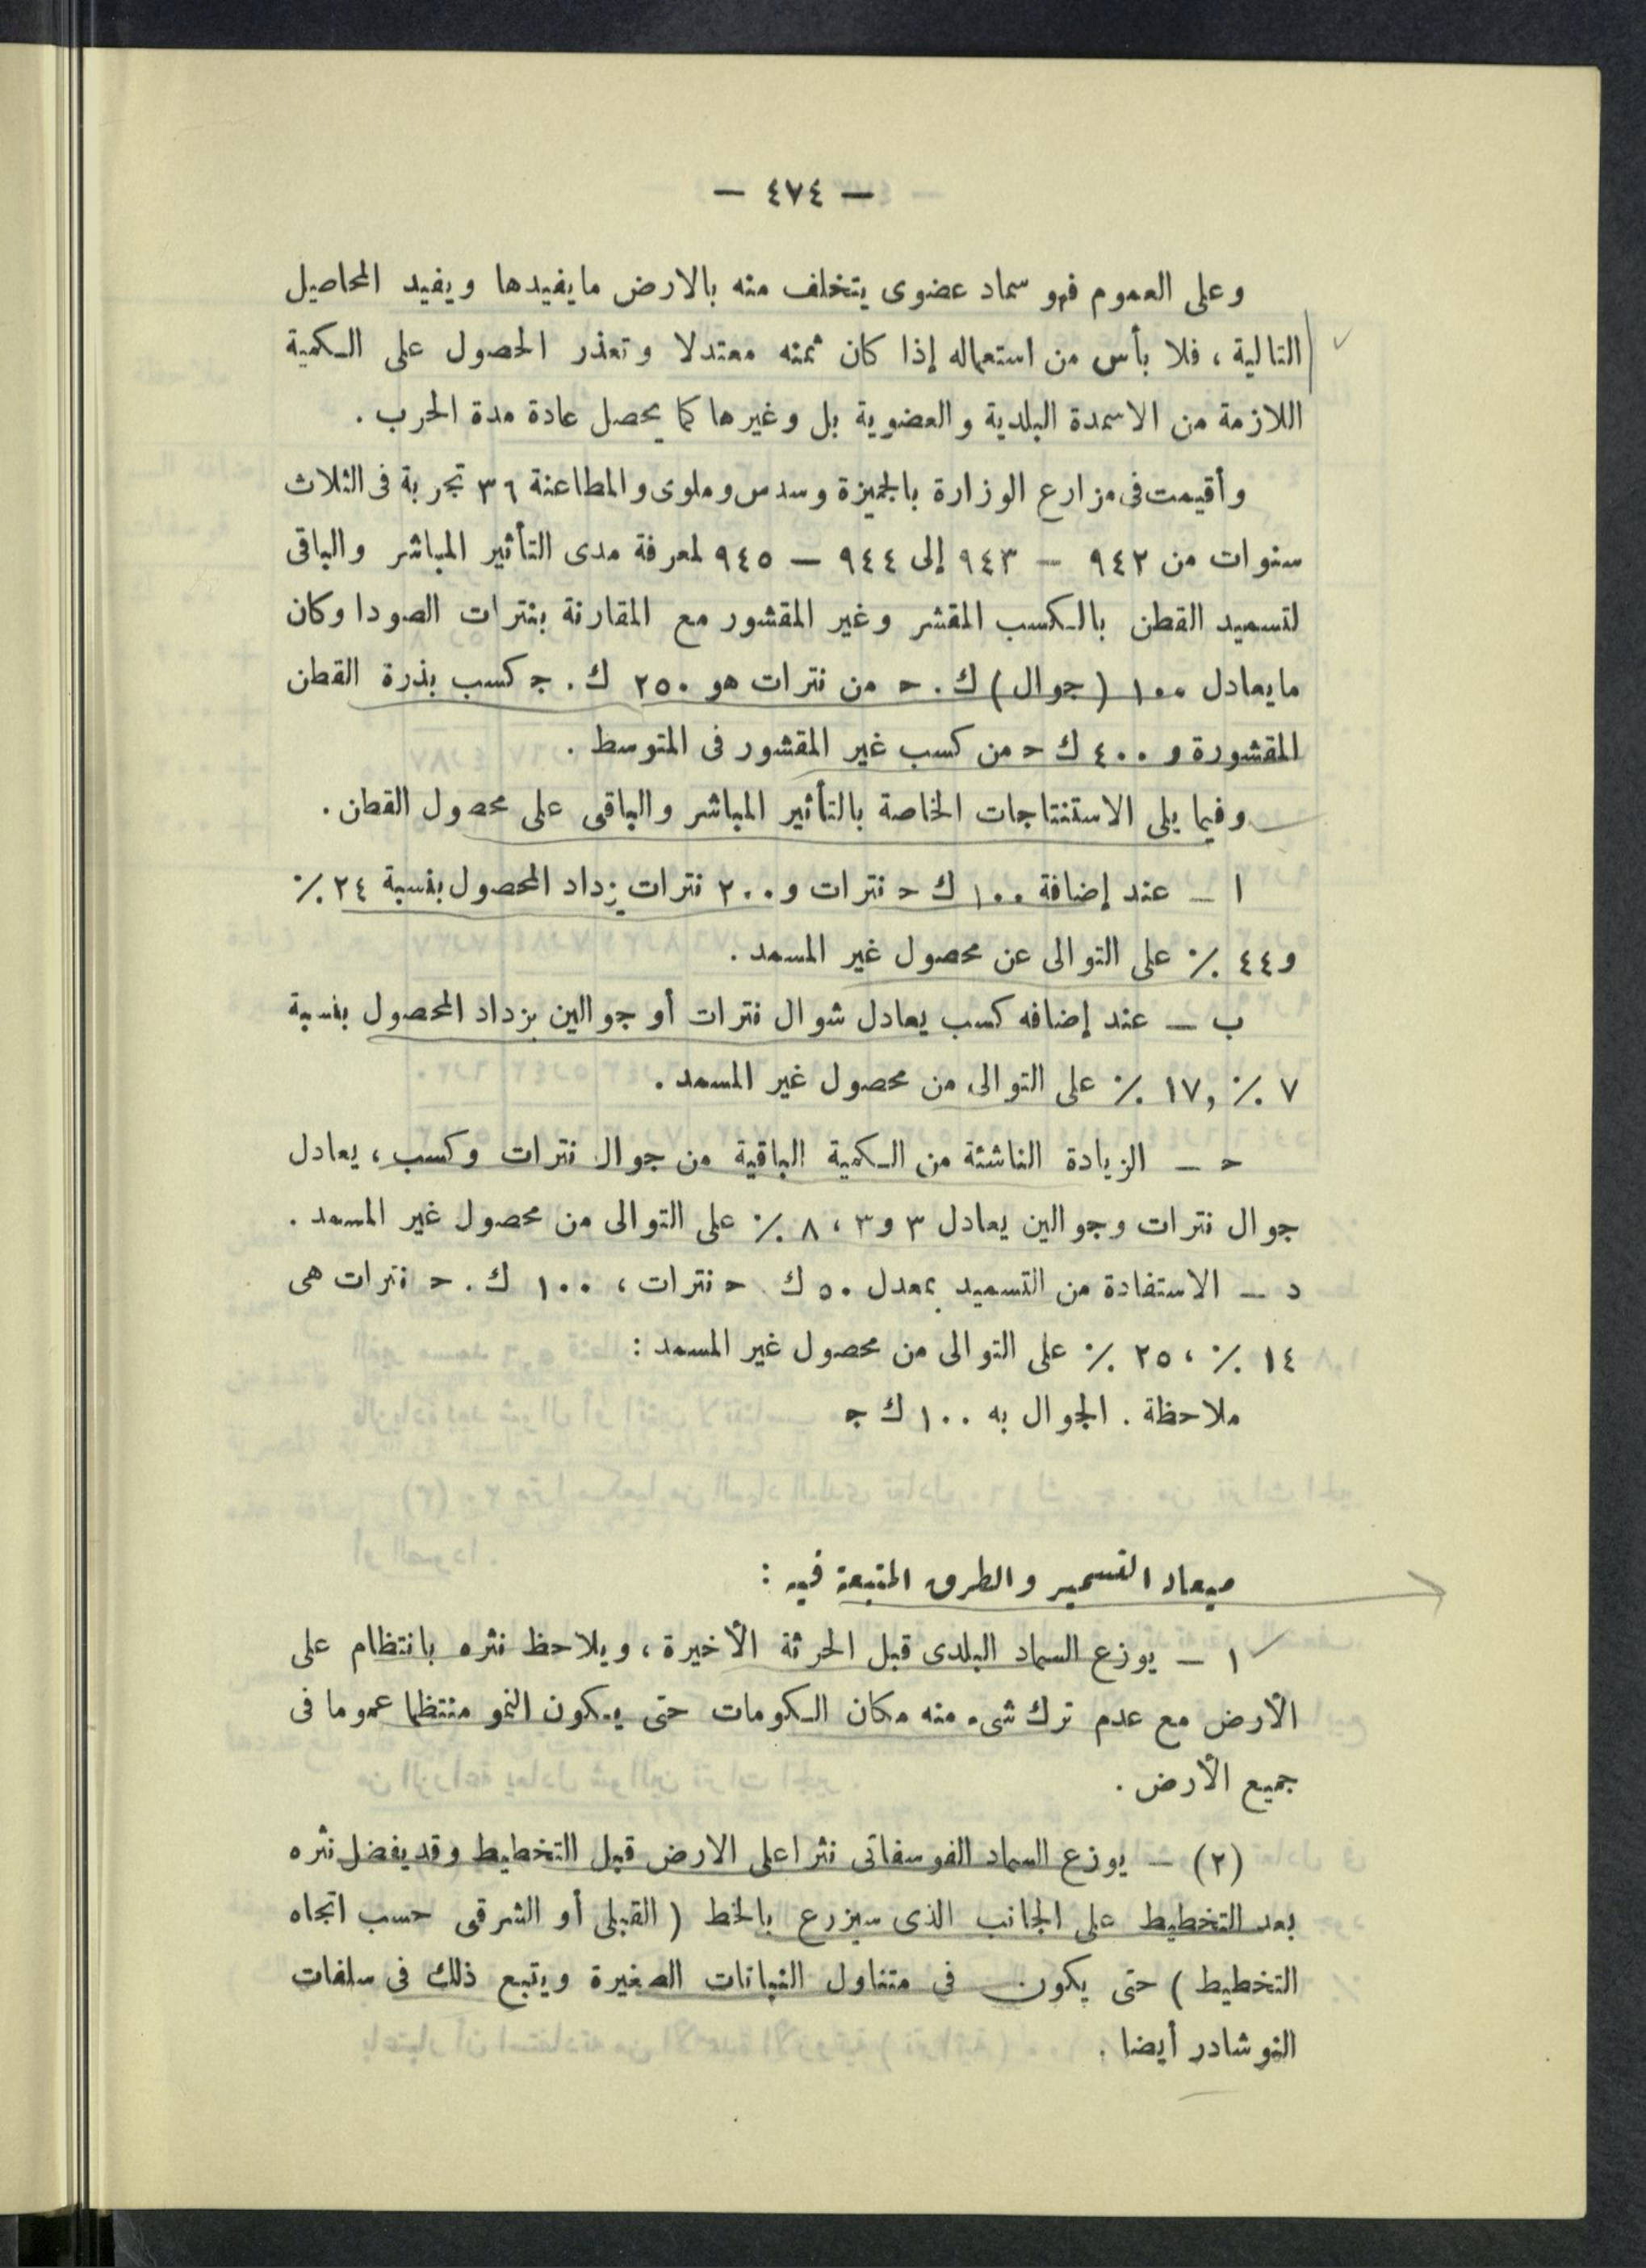 — ٤٧٤ —
وعلى العموم فهو سماد عضوى يتخلف منه بالارض مايفيدها ويفيد المحاصيل
التالية ، فلا بأس من استعماله إذا كان ثمنه معتدلا وتعذر الحصول على الكمية
اللازمة من الاسمدة البلدية والعضوية بل وغيرها كما يحصل عادة مدة الحرب .
وأقيمت فى مزارع الوزارة بالجيزة وسدس وملوى والمطاعنة ٣٦ تجربة فى الثلاث
سنوات من ٩٤٢ — ٩٤٣ إلى ٩٤٤ — ٩٤٥ لمعرفة مدى التأثير المباشر والباقى
لتسميد القطن بالكسب المقشر وغير المقشور مع المقارنة بنترات الصودا وكان
مايعادل ١٠٠ (جوال) ك . ح من نترات هو ٢٥٠ ك . ج كسب بذرة القطن
المقشورة و ٤٠٠ ك ح من كسب غير المقشور فى المتوسط .
وفيما يلى الاستنتاجات الخاصة بالتأثير المباشر والباقى على محصول القطن .
ا — عند إضافة ١٠٠ ك ح نترات و ٢٠٠ نترات يزداد المحصول بنسبة ٢٤ ٪
و٤٤ ٪ على التوالى عن محصول غير المسمد .
ب — عند إضافه كسب يعادل شوال نترات أو جوالين يزداد المحصول بنسبة
٧ ٪ و١٧ ٪ على التوالى من محصول غير المسمد .
ح — الزيادة الناشئة من الكمية الباقية من جوال نترات وكسب ، يعادل
جوال نترات وجوالين يعادل ٣ و٣ ، ٨ ٪ على التوالى من محصول غير المسمد .
د — الاستفادة من التسميد بمعدل ٥٠ ك ح نترات ، ١٠٠ ك . ح نترات هى
١٤ ٪ ، ٢٥ ٪ على التوالى من محصول غير المسمد :
ملاحظة . الجوال به ١٠٠ ك ج
ميعاد التسميد والطرق المتبعة فيه :
١ — يوزع السماد البلدى قبل الحرثة الأخيرة ، ويلاحظ نثره بانتظام على
الأرض مع عدم ترك شىء منه مكان الكومات حتى يكون النمو منتظما عموما فى
جميع الأرض .
(٢) — يوزع السماد الفوسفاتى نثرا على الارض قبل التخطيط وقد يفضل نثره
بعد التخطيط على الجانب الذى سيزرع بالخط ( القبلى أو الشرقى حسب اتجاه
التخطيط ) حتى يكون فى متناول النباتات الصغيرة ويتبع ذلك فى سلفات
النوشادر أيضا .